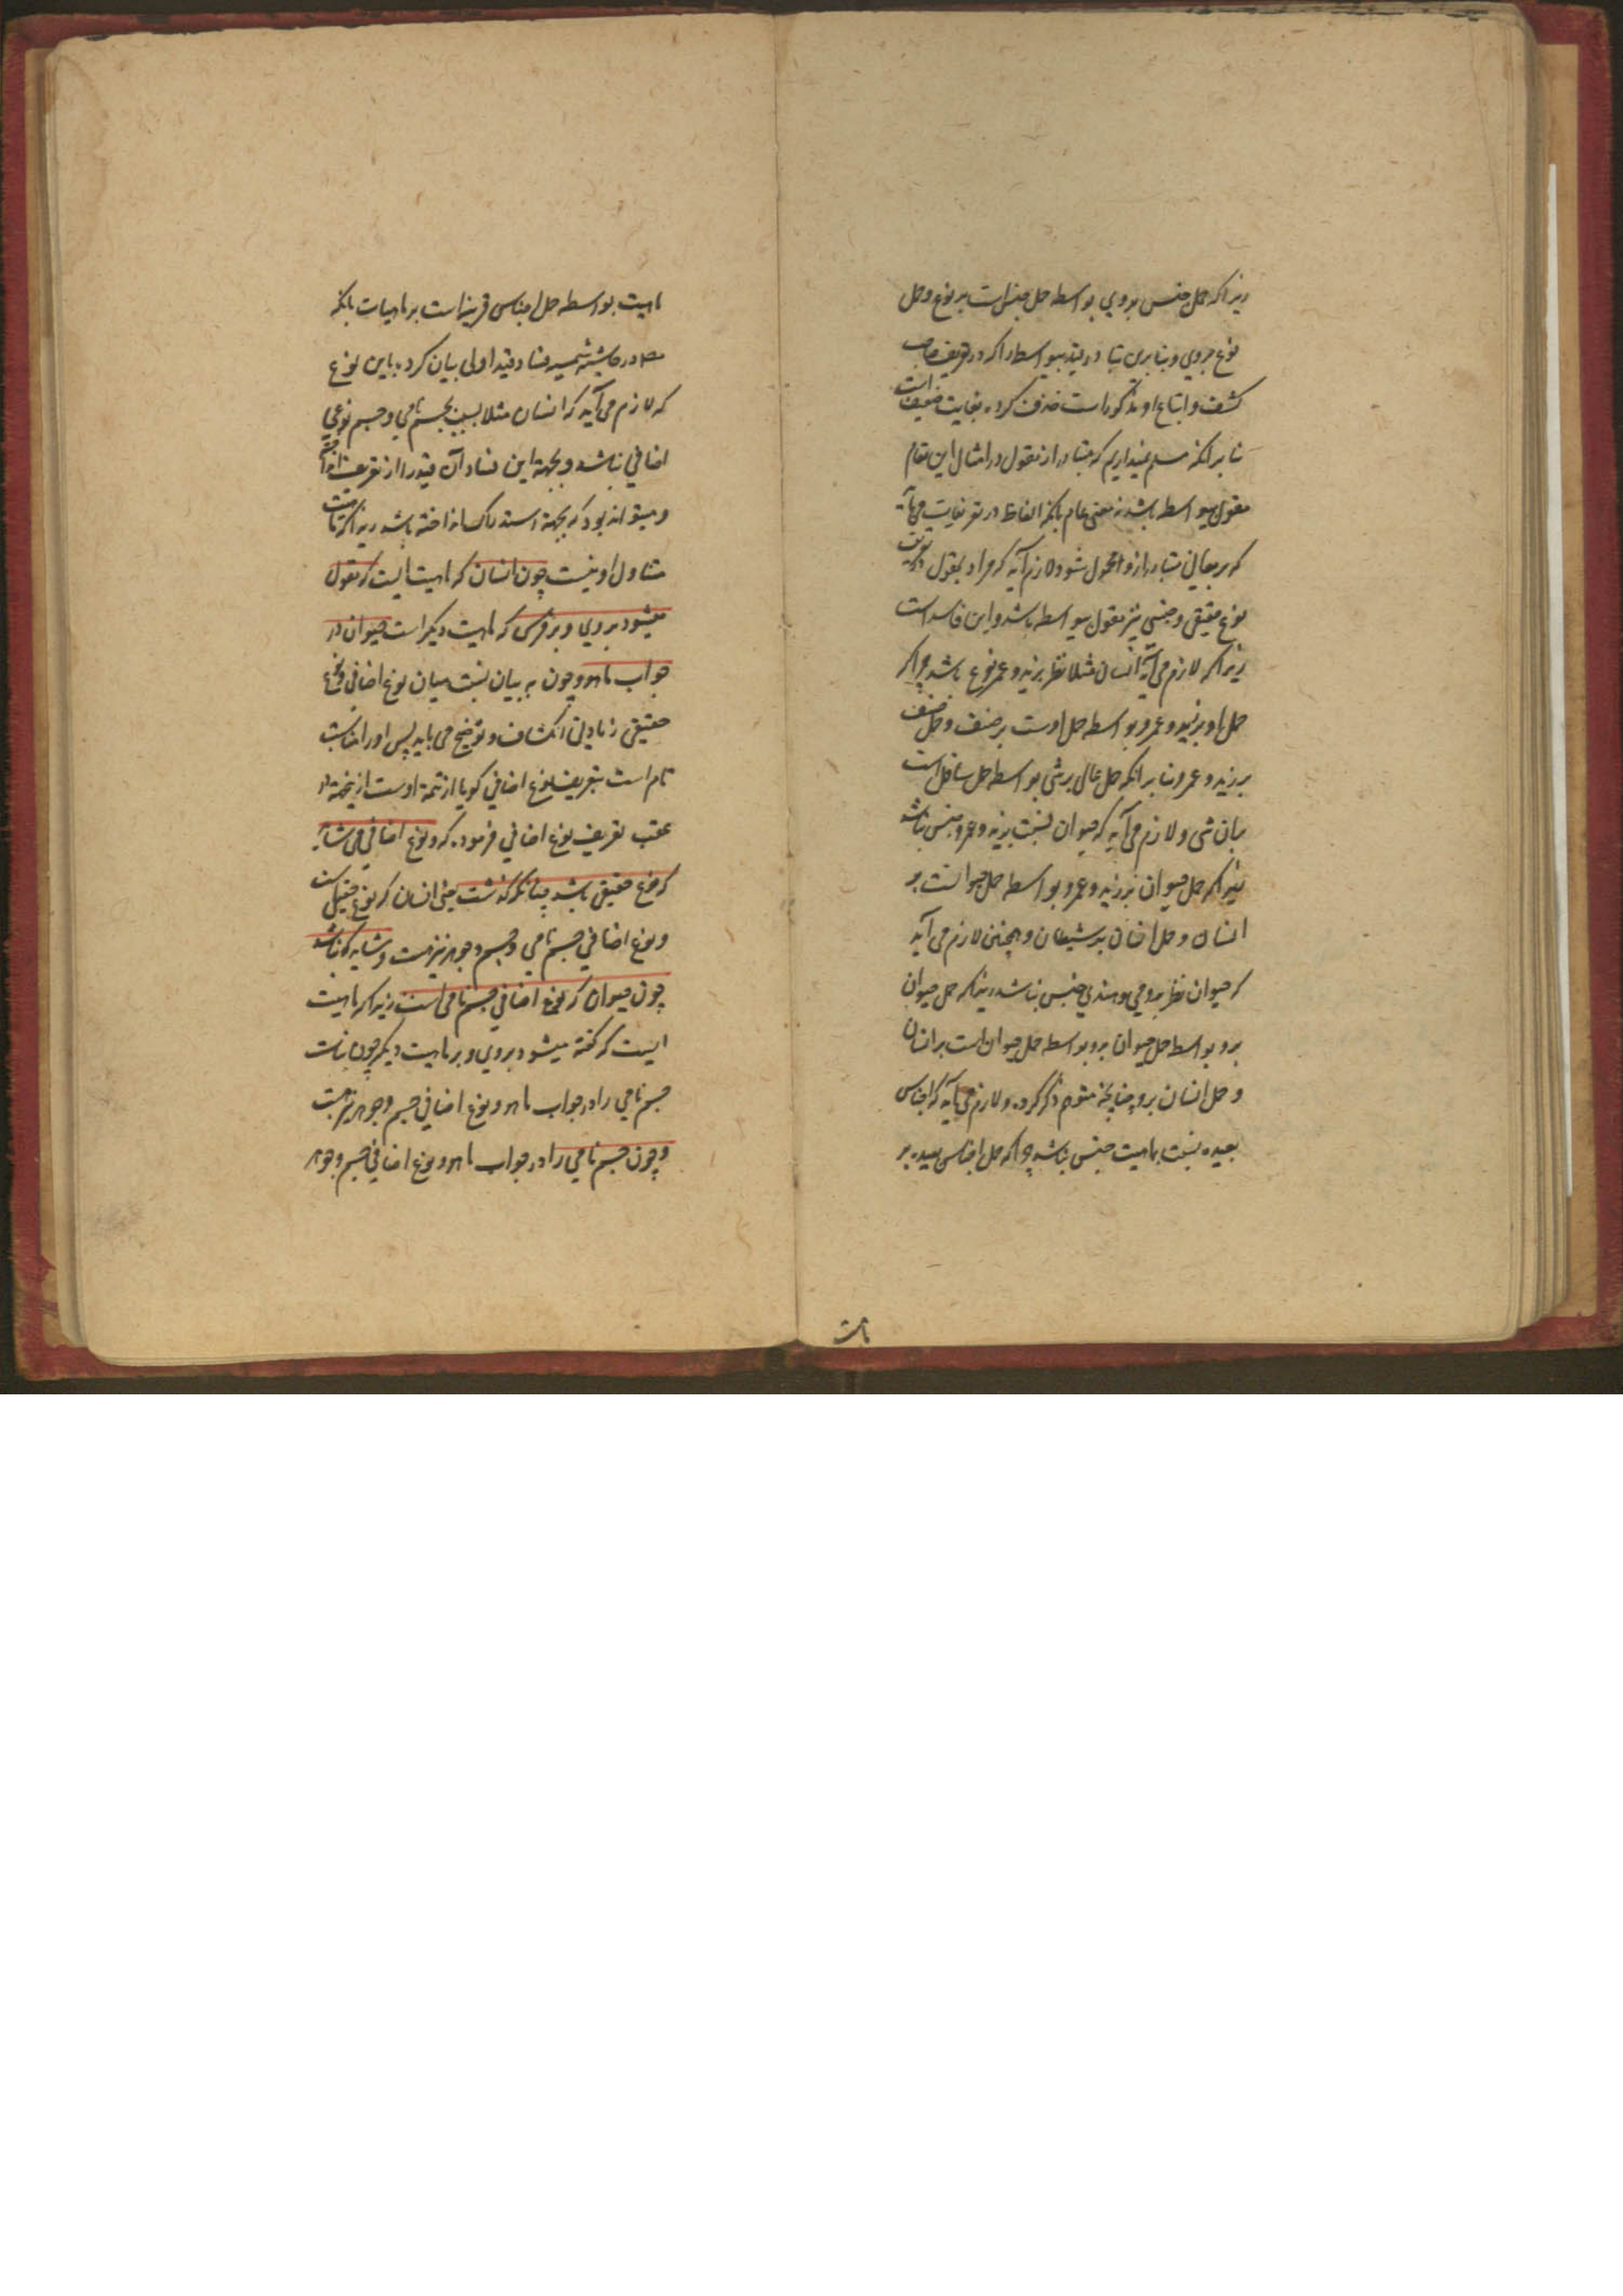 زیرا که حمل جنس بروی بواسطه حمل جنس است بر نوع و حمل
نوع بروی و بنابرین تبادر قید بیواسطه را که در تعریف صاحب
کشف و اتباع او مذکور است حذف کرده بغایت ضعیف است
بنا بر آنکه مسلم نمیداریم که متبادر از مقول در امثال این مقام
مقول بیواسطه باشد نه معنی عام بانکه الفاظ در تعریفات می باید
که بر معانی متبادر ازو محمول شود لازم آید که مراد بمقول در تعریف
نوع حقیقی و جنس نیز مقول بیواسطه باشد و این فاسد است
زیرا که لازم می آید انسان مثلا نظر بزید و عمرو نوع نباشد چرا که
حمل او بر زید و عمرو بواسطه حمل اوست بر صنف و حمل صنف
بر زید و عمرو بنا بر آنکه حمل عالی بر شی بواسطه حمل سافل است
بران شی و لازم می آید که حیوان نسبت بزید و عمرو جنس نباشد
زیرا که حمل حیوان بر زید و عمرو بواسطه حمل حیوانست بر
انسان و حمل انسان بر ایشان و همچنین لازم می آید
که حیوان نظر برومی و هندی جنس نباشد زیرا که حمل حیوان
برو بواسطه حمل حیوان است بر انسان
و حمل انسان برو چنانچه متوهم ذکر کرده و لازم می آید که اجناس
بعیده نسبت بماهیت جنس نباشد چرا که حمل اجناس بعیده بر
ماهیت بواسطه حمل اجناس قریبه است بر ماهیات بانکه
مصـ در حاشیه شمسیه فساد قید اولی بیان کرده باین نوع
که لازم می آید که انسان مثلا نسبت بجسم نامی و جسم نوعی
اضافی نباشد و بجهة این فساد آن قید را از تعریف
و میتواند بود که بجهة استدراک انداخته باشد زیرا که
متناول او نیست چون انسان که ماهیت ایست که مقول
میشود بروی و بر فرس که ماهیت دیگر است حیوان در
جواب ماهو و چون به بیان نسبت میان نوع اضافی و نوع
حقیقی زیادتی انکشاف و توضیح می یابد پس او را مناسبت
تام است بتعریف نوع اضافی گویا از تتمه اوست ازینجهة در
عقب تعریف نوع اضافی فرمود که و نوع اضافی می شاید
که نوع حقیقی باشد چنانکه گذشت یعنی انسان که نوع حقیقی است
و نوع اضافی جسم نامی و جسم و جوهر نیز هست و شاید که نباشد
چون حیوان که نوع اضافی جسم نامی است زیرا که ماهیت
ایست که گفته میشود بروی و بر ماهیت دیگر چون نبات
جسم نامی را در جواب ماهو و نوع اضافی جسم و جوهر نیز هست
و چون جسم نامی را در جواب ماهو و نوع اضافی جسم و جوهر